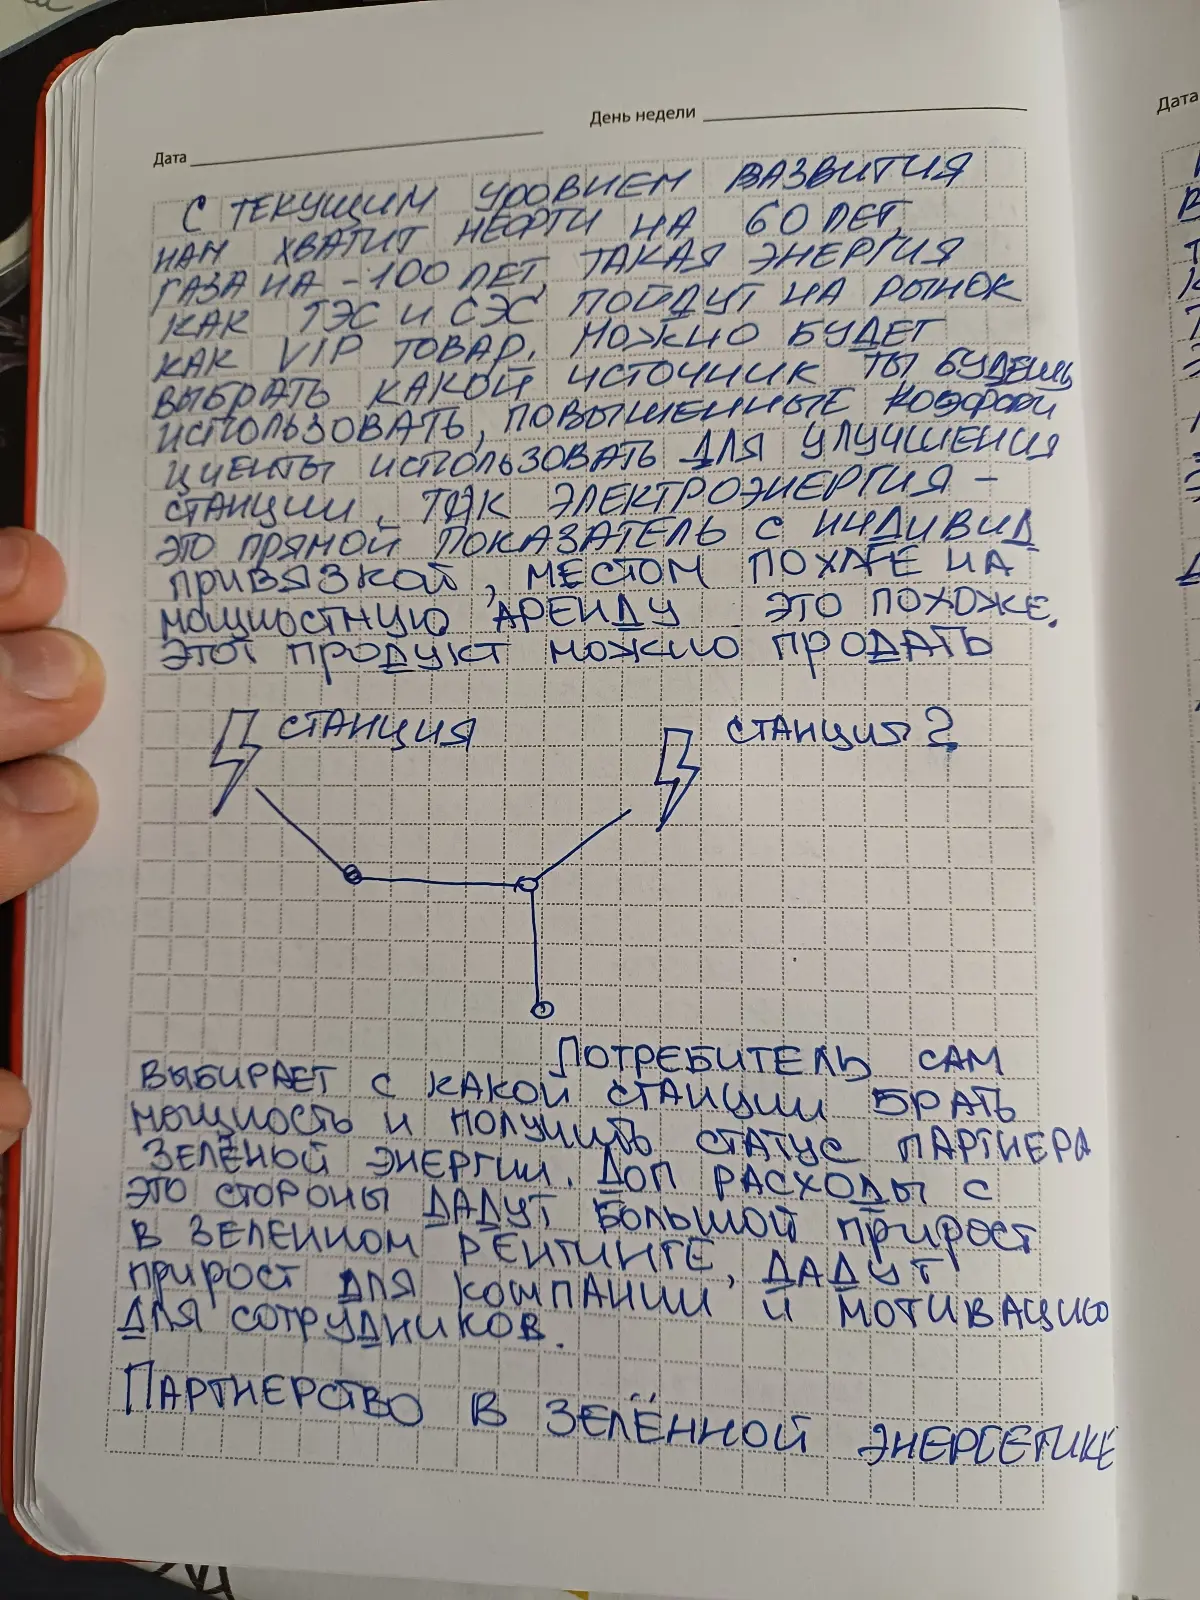 Дата
День недели
Дата
С ТЕКУЩИМ УРОВНЕМ РАЗВИТИЯ
НАМ ХВАТИТ НЕФТИ НА 60 ЛЕТ,
ГАЗА НА -100 ЛЕТ, ТАКАЯ ЭНЕРГИЯ
КАК ТЭС И СЭС ПОЙДУТ НА РЫНОК
КАК VIP ТОВАР, МОЖНО БУДЕТ
ВЫБРАТЬ КАКОЙ ИСТОЧНИК ТЫ БУДЕШЬ
ИСПОЛЬЗОВАТЬ, ПОВЫШЕННЫЕ КОЭФФИ
ЦИЕНТЫ ИСПОЛЬЗОВАТЬ ДЛЯ УЛУЧШЕНИЯ
СТАНЦИИ, ТАК ЭЛЕКТРОЭНЕРГИЯ -
ЭТО ПРЯМОЙ ПОКАЗАТЕЛЬ С ИНДИВИД
ПРИВЯЗКОЙ, МЕСТОМ ПОХАЖЕ НА
МОЩНОСТНУЮ АРЕНДУ ЭТО ПОХОЖЕ.
ЭТОТ ПРОДУКТ МОЖНО ПРОДАТЬ
СТАНЦИЯ
СТАНЦИЯ 2
ПОТРЕБИТЕЛЬ САМ
ВЫБИРАЕТ С КАКОЙ СТАНЦИИ БРАТЬ
МОЩНОСТЬ И ПОЛУЧИТЬ СТАТУС ПАРТНЕРА
ЗЕЛЁНОЙ ЭНЕРГИИ. ДОП РАСХОДЫ С
ЭТО СТОРОНЫ ДАДУТ БОЛЬШОЙ ПРИРОСТ
В ЗЕЛЕННОМ РЕЙТИНГЕ, ДАДУТ
ПРИРОСТ ДЛЯ КОМПАНИИ И МОТИВАЦИЮ
ДЛЯ СОТРУДНИКОВ.
ПАРТНЕРСТВО В ЗЕЛЁННОЙ ЭНЕРГЕТИКЕ